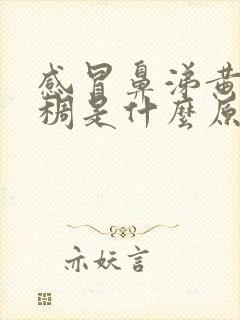 感冒鼻涕黄
稠是什麼原
亦妖言